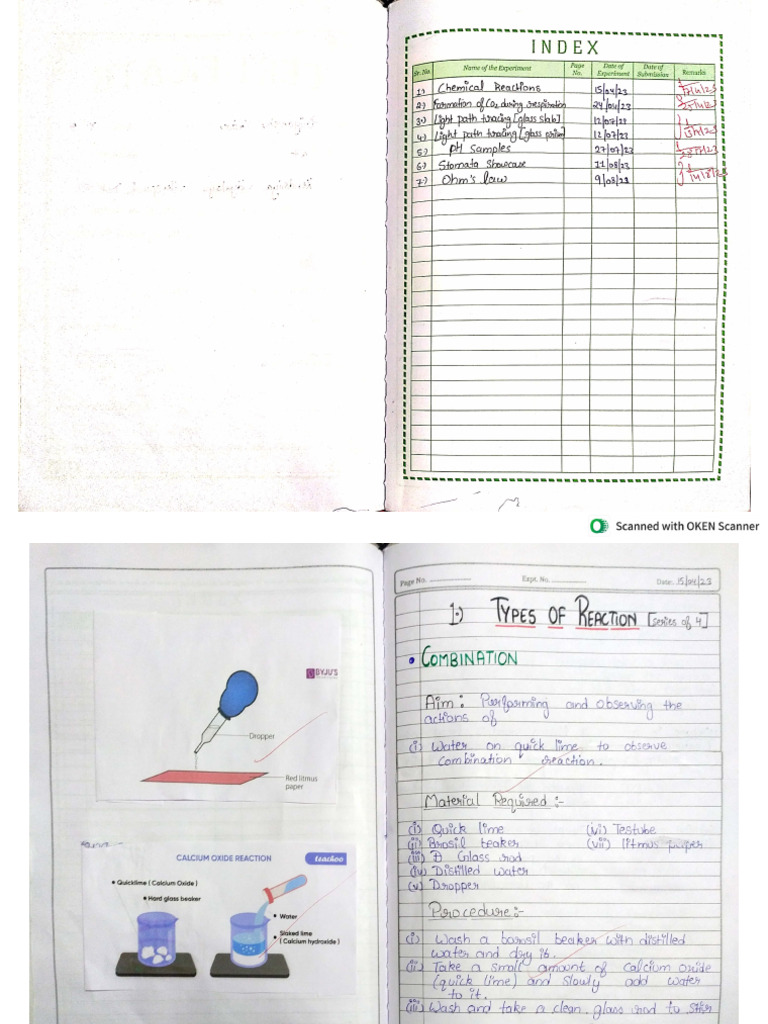 INDEX
Sr. No. Name of the Experiment Page No. Date of Experiment Date of Submission Remarks
1·) Chemical Reactions 15/04/23
2·) Formation of CO2 during respiration 24/04/23
3·) Light path tracing [glass slab] 12/07/23
4·) Light path tracing [glass prism] 12/07/23
5·) pH Samples 27/07/23
6·) Stomata Showcase 11/08/23
7·) Ohm's law 9/08/23
Scanned with OKEN Scanner
BYJU'S
Dropper
Red litmus
paper
CALCIUM OXIDE REACTION teachoo
Quicklime ( Calcium Oxide )
Hard glass beaker
Water
Slaked lime
( Calcium hydroxide )
Page No. Expt. No. Date: 15/04/23
1·) TYPES OF REACTION [series of 4]
COMBINATION
Aim: Performing and observing the
actions of
(i) Water on quick lime to observe
combination reaction.
Material Required :-
(i) Quick lime (vi) Testube
(ii) Brosil beaker (vii) litmus paper
(iii) Glass rod
(iv) Distilled water
(v) Dropper
Procedure:-
(i) Wash a borosil beaker with distilled
water and dry it.
(ii) Take a small amount of calcium oxide
(quick lime) and slowly add water
to it.
(iii) Wash and take a clean glass rod to stir